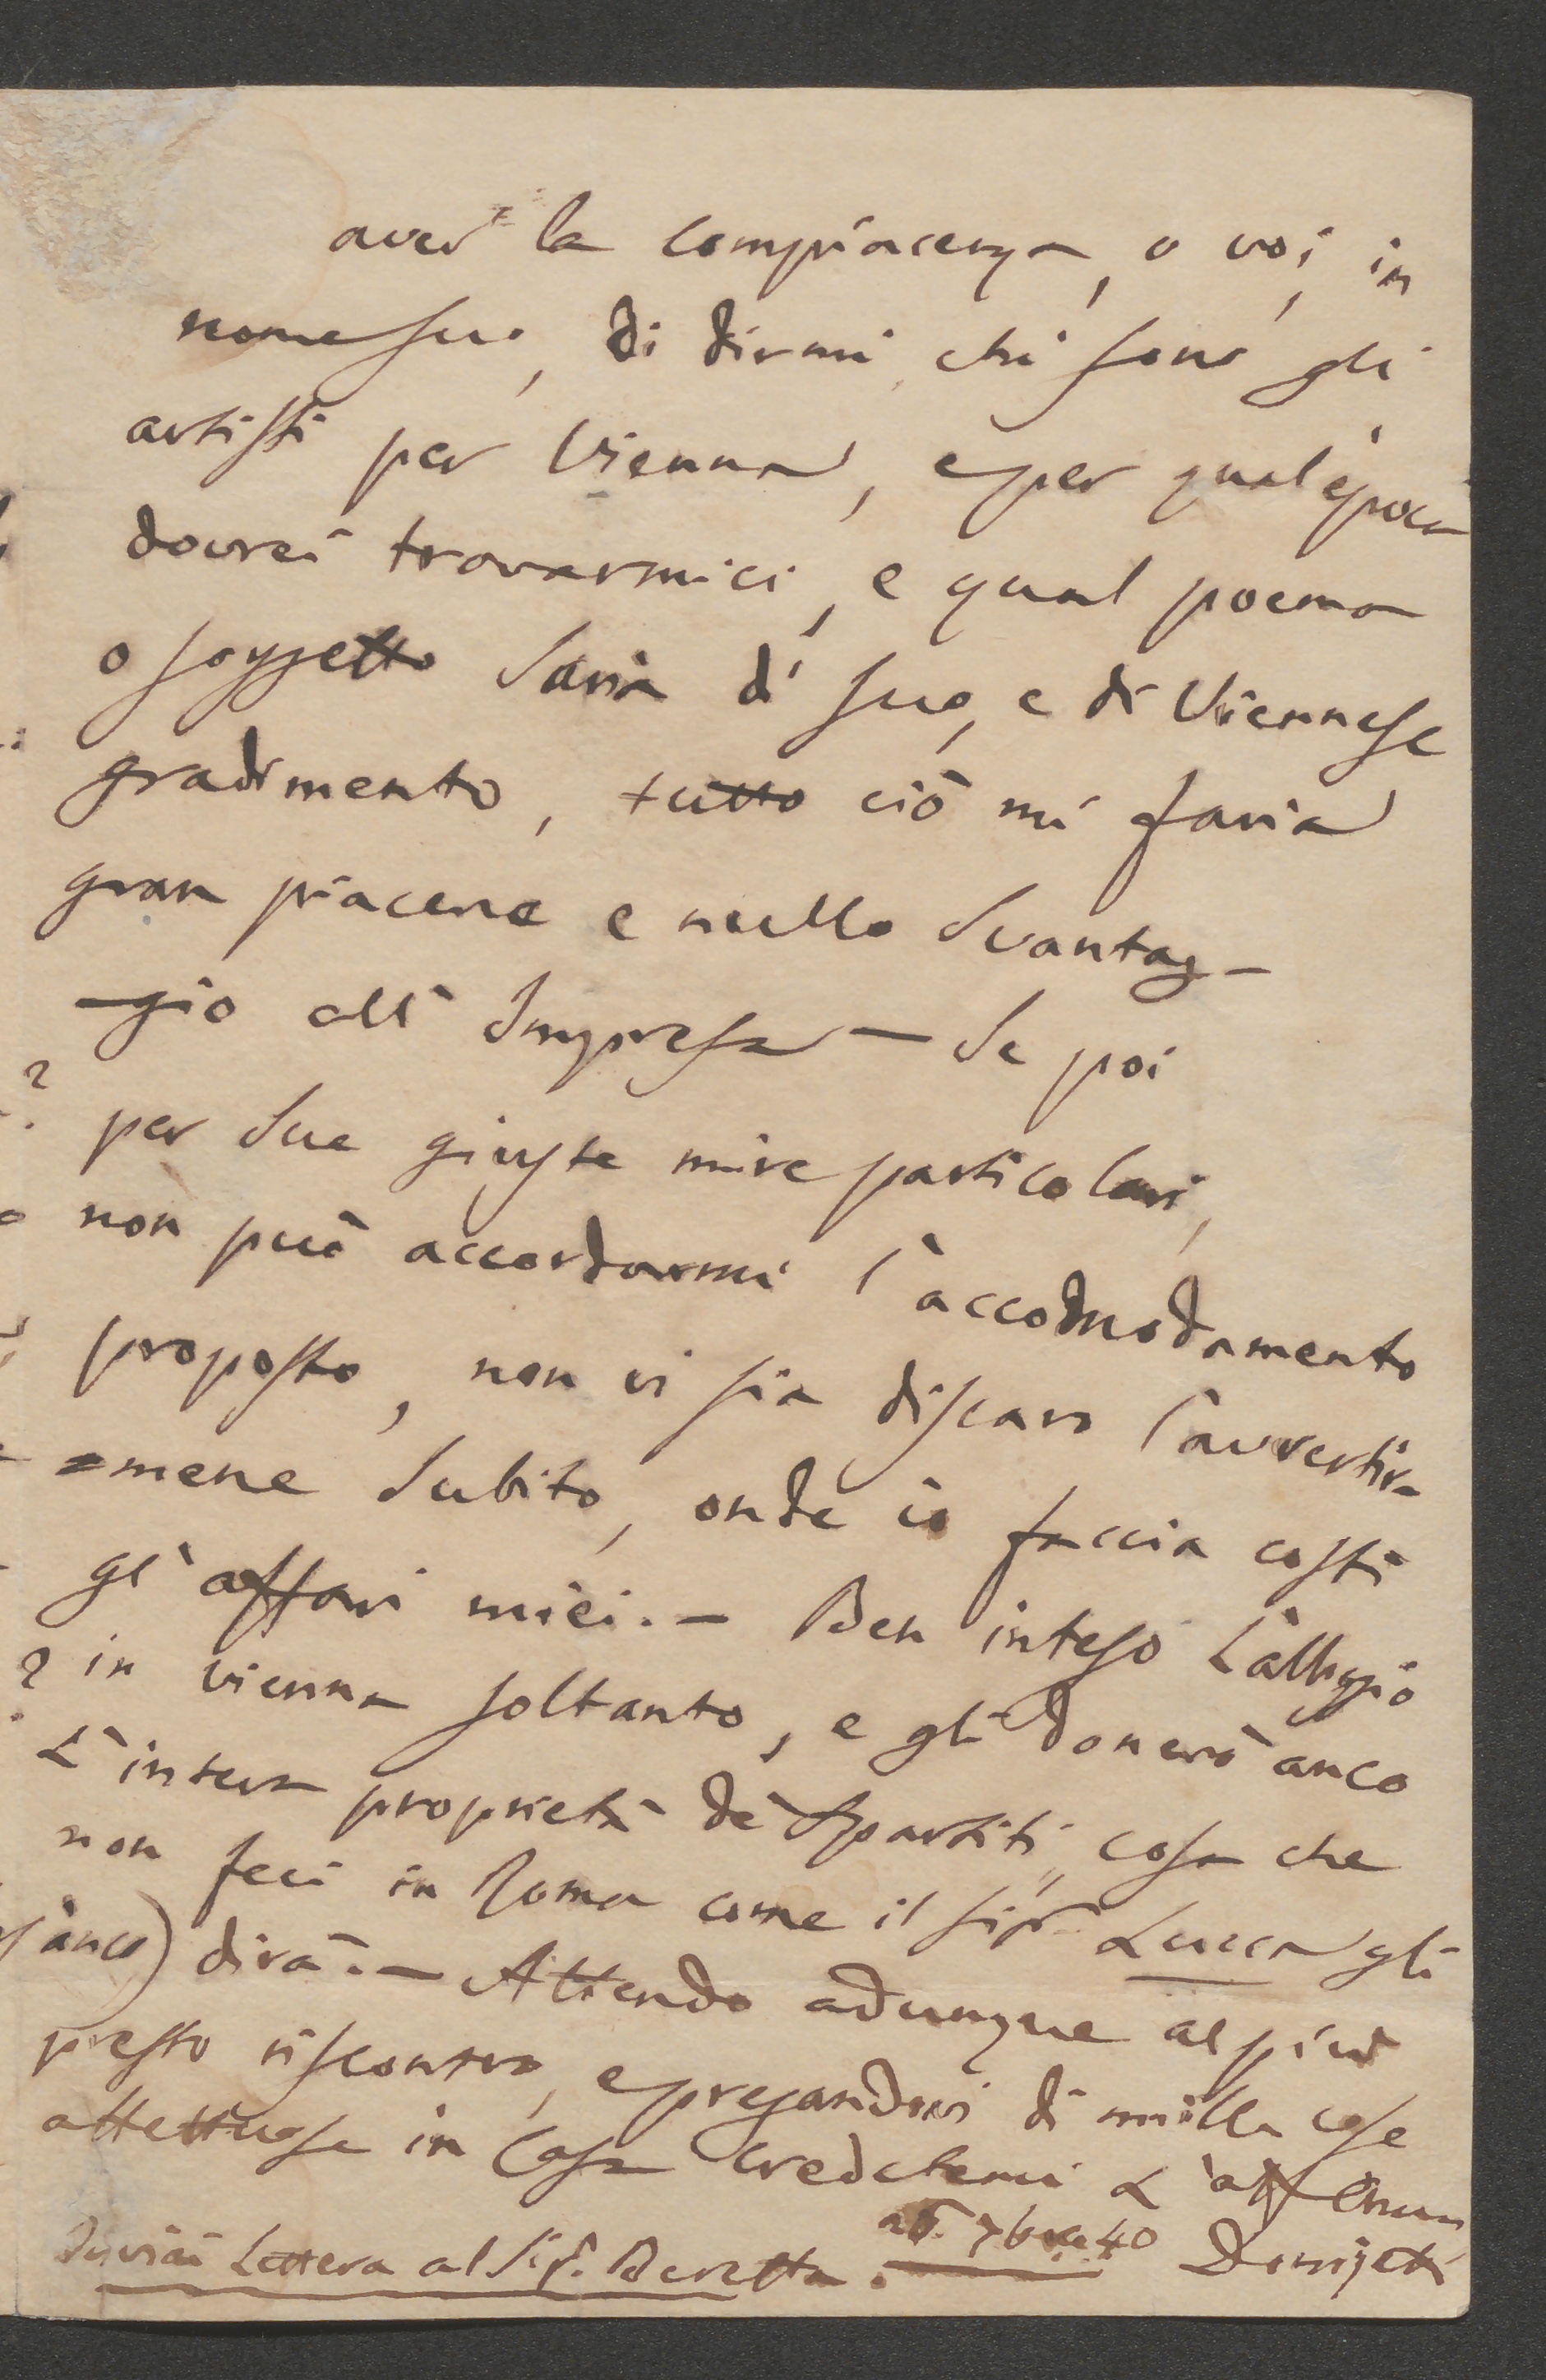 aver la compiacenza, o voi, in
nome suo, di dirmi chi sono gli
artisti per Vienna, e per qual'epoca
dovrei trovarmici, e qual poema
o soggetto Saria di suo, e di Viennese
gradimento, tutto ciò mi faria
gran piacere e nullo Svantag-
-gio all'Impresa — Se poi
per Sue giuste mire particolari,
non può accordarmi l'accodmodamento
proposto, non vi sia discaro l'avvertir-
=mene Subito, onde io faccia costì
gl'affari miei. — Ben inteso L'alloggio
in Vienna soltanto, e gli donerò anco
L'intera proprietà de' Spartiti, cosa che
non feci in Roma come il sigr Lucca gli
dirà. — Attendo adunque al più
presto riscontro, e pregandovi di mille cose
affettuose in Casa credetemi L'aff
Inviai Lettera al Sigr. Beretta. 7bre 40 Donizetti